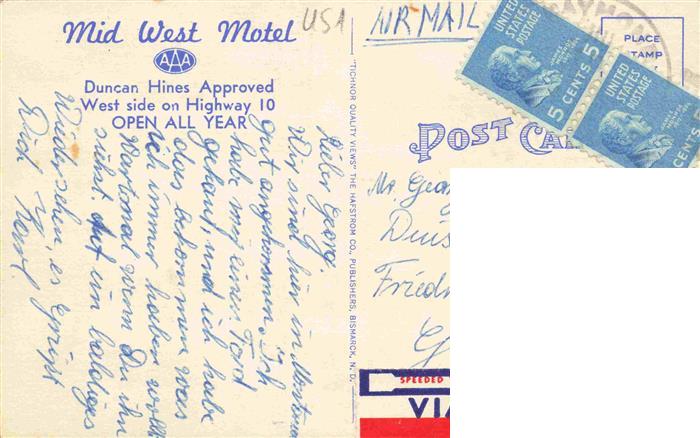 Mid West Motel
AAA
Duncan Hines Approved
West side on Highway 10
OPEN ALL YEAR
USA
AIR MAIL
Lieber Georg,
Wir sind hier in Montana
gut angekommen. Ich
habe mir einen Ford
gekauft, und ich habe
das bekommen was
ich immer haben wollte
wenn Du ihn
siehst. Auf ein baldiges
Wiedersehen, es Grüßt
Dich
"TICHNOR QUALITY VIEWS" THE HAFSTROM CO., PUBLISHERS, BISMARCK, N. D.
UNITED STATES POSTAGE
5 CENTS 5
UNITED STATES POSTAGE
CENTS 5
PLACE
STAMP
POST CA
Mr. Georg
Duis
Friedr
G
SPEEDED
VIA